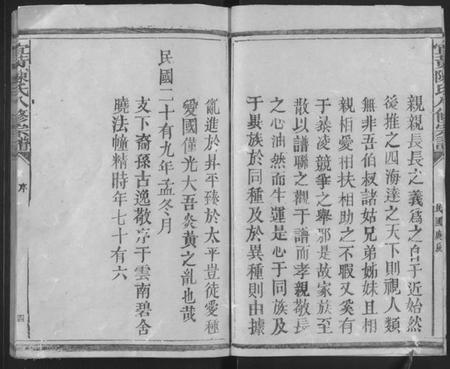 親親長長之義爲之自于近始然
後推之四海達之天下則視人類
無非吾伯叔諸姑兄弟姊妹且相
親相愛相扶相助之不暇又奚有
于暴凌競爭之舉耶是故家族至
散以譜聯之觀于譜而孝親敬長
之心油然而生運是心于同族及
于異族於同種及於異種則由據
亂進於昇平臻於太平豈徒愛種
愛國僅光大吾炎黄之亂也哉
民國二十有九年孟冬月
支下裔孫古逸敬序于雲南碧舍
曉法幢精時年七十有六
宜黄陳氏八修宗譜
序
四
宜黄陳氏八修宗譜
民國庚辰